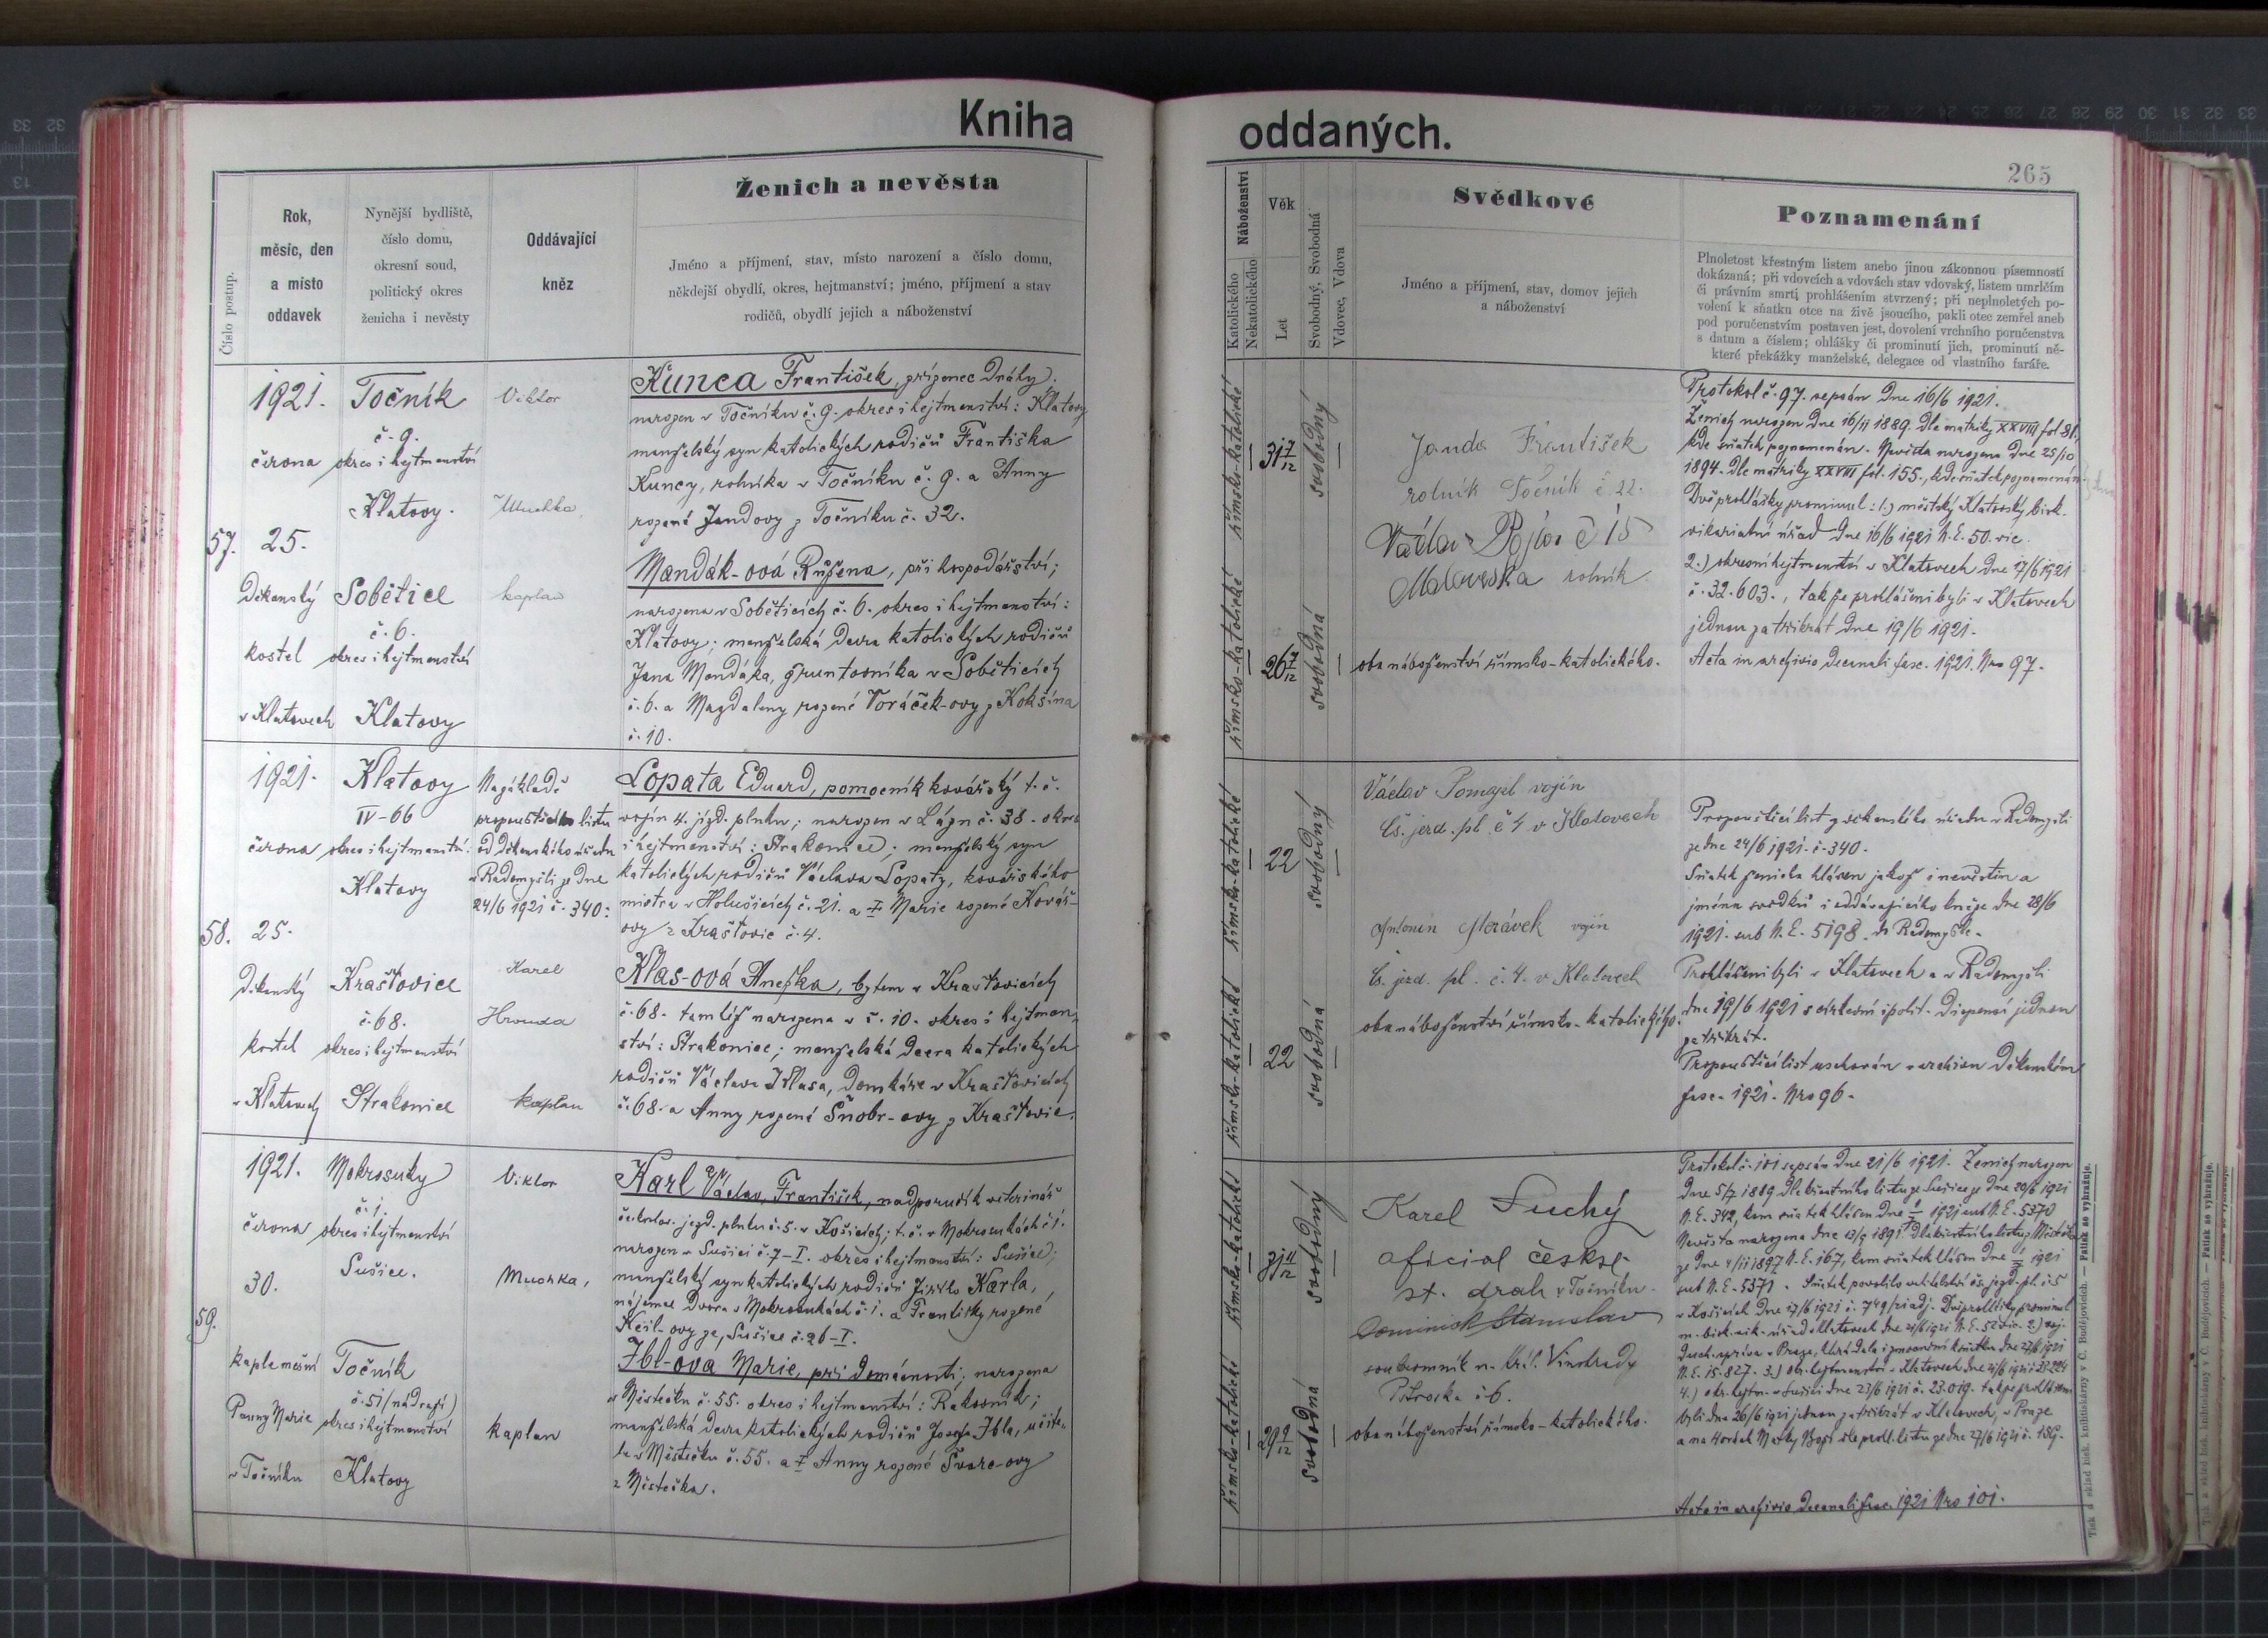 Kniha
Číslo postup.
Rok,
měsíc, den
a místo
oddavek
Nynější bydliště,
číslo domu,
okresní soud,
politický okres
ženicha i nevěsty
Oddávající
kněz
Ženich a nevěsta
Jméno a příjmení, stav, místo narození a číslo domu,
někdejší obydlí, okres, hejtmanství; jméno, příjmení a stav
rodičů, obydlí jejich a náboženství
57.
1921.
června
25.
Děkanský
kostel
v Klatovech
Točník
č. 9.
okres i hejtmanství
Klatovy.
Sobětice
č. 6.
okres i hejtmanství
Klatovy
Viktor
Muchka
kaplan
Kunca František, zřízenec dráhy.
narozen v Točníku č. 9. okres i hejtmanství: Klatovy
manželský syn katolických rodičů Františka
Kuncy, rolníka v Točníku č. 9. a Anny
rozené Jandovy z Točníku č. 32.
Mandák-ová Růžena, při hospodářství;
narozena v Soběticích č. 6. okres i hejtmanství:
Klatovy; manželská dcera katolických rodičů
Jana Mandáka, gruntovníka v Soběticích
č. 6. a Magdaleny rozené Voráček-ovy z Kokšína
č. 10.
58.
1921.
června
25.
Děkanský
kostel
v Klatovech
Klatovy
IV-66
okres i hejtmanství:
Klatovy
Kraštovice
č. 68.
okres i hejtmanství
Strakonice
Na základě
propouštěcího listu
od Děkanského úřadu
v Radomyšli ze dne
24/6 1921 č. 340:
Karel
Hrouda
kaplan
Lopata Eduard, pomocník kovářský t. č.
vojín 4. jízd. pluku; narozen v Láz č. 38. okres
i hejtmanství: Strakonice; manželský syn
katolických rodičů Václava Lopaty, kovářského
mistra v Holušicích č. 21. a † Marie rozené Kovář-
ovy z Kraštovic č. 4.
Klas-ová Anežka, bytem v Kraštovicích
č. 68. tamtéž narozena v č. 10. okres i hejtman-
ství: Strakonice; manželská dcera katolických
rodičů Václava Klasa, domkáře v Kraštovicích
č. 68. a Anny rozené Šnobr-ovy z Kraštovic.
59.
1921.
června
30.
kaple mešní
Panny Marie
v Točníku
Mokrosuky
č. 1.
okres i hejtmanství
Sušice.
Točník
č. 51 (nádraží)
okres i hejtmanství
Klatovy
Viktor
Muchka,
kaplan
Karl Václav, František, nadporučík veterinář
českoslov. jezd. pluku č. 5. v Košicích; t. č. v Mokrosukách č. 1.
narozen v Sušici č. 7-I. okres i hejtmanství: Sušice;
manželský syn katolických rodičů Karla,
nájemce dvora v Mokrosukách č. 1. a Františky rozené
ze Sušice č. 26-I.
Ibl-ova Marie, při domácnosti; narozena
v Městečku č. 55. okres i hejtmanství: Rakovník;
manželská dcera katolických rodičů Josefa Ibla, učite-
le v Městečku č. 55. a † Anny rozené Švarc-ovy
z Městečka.
oddaných.
265
Náboženství
Katolického
Nekatolického
Věk
Let
Svobodný, Svobodná
Vdovec, Vdova
Svědkové
Jméno a příjmení, stav, domov jejich
a náboženství
Poznamenání
Plnoletost křestným listem anebo jinou zákonnou písemností
dokázaná; při vdovcích a vdovách stav vdovský, listem umrlčím
či právním smrti prohlášením stvrzený; při neplnoletých po-
volení k sňatku otce na živě jsoucího, pakli otec zemřel aneb
pod poručenstvím postaven jest, dovolení vrchního poručenstva
s datum a číslem; ohlášky či prominutí jich, prominutí ně-
které překážky manželské, delegace od vlastního faráře.
římsko-katolické
31 7/12
svobodný
římsko-katolické
26 7/12
svobodná
Janda František
rolník Točník č 22.
Václav Pojar č 15
rolník
oba náboženství římsko-katolického.
Protokol č. 97. sepsán dne 16/6 1921.
Ženich narozen dne 16/11 1889. Dle matriky XXVIII fol. 81.,
kde sňatek poznamenán. Nevěsta narozena dne 25/10
1894. Dle matriky XXVIII fol. 155., kde sňatek poznamenán.
Dvě prohlášky prominul: 1.) městský Klatovský bisk.
vikariatní úřad dne 16/6 1921 N. E. 50. vic.
2.) okresní hejtmanství v Klatovech dne 17/6 1921
č. 32.603., tak že prohlášeni byli v Klatovech
jednou za třikrát dne 19/6 1921.
Acta in archivio decanali fasc. 1921. Nro 97.
římsko-katolické
22
svobodný
římsko-katolické
22
svobodná
Václav Pomezl vojín
Čs. jezd. pl. č 4 v Klatovech
Antonín Morávek vojín
Čs. jezd. pl. č. 4. v Klatovech
oba náboženství římsko-katolického.
Propouštěcí list z děkanského úřadu v Radomyšli
ze dne 24/6 1921. č. 340.
Sňatek ženicha hlášen jakož i nevěstin a
jména svědků i oddávajícího kněze dne 28/6
1921. sub N. E. 5198. do Radomyšle.
Prohlášeni byli v Klatovech a v Radomyšli
dne 19/6 1921 s církevní i polit. dispensí jednou
za třikrát.
Propouštěcí list uschován v archivu děkanském
fasc. 1921. Nro 96.
římsko-katolické
31 11/12
svobodný
římsko-katolické
29 9/12
svobodná
Karel Suchý
oficial českosl.
st. drah v Točníku.
Dominik Stanislav
soukromník n. Král. Vinohrady
č 6.
oba náboženství římsko-katolického.
Protokol č. 101 sepsán dne 21/6 1921. Ženich narozen
dne 5/7 1889. Dle křestního listu ze Sušice ze dne 20/6 1921
N. E. 342, kam sňatek hlášen dne 1921 sub N. E. 5370
Nevěsta narozena dne 13/9 1891. Dle křestního listu z Městečka
ze dne 4/11 1897 N. E. 167, kam sňatek hlášen dne 1921
sub N. E. 5371. Sňatek povolilo velitelství čs. jezd. pl. č. 5
v Košicích dne 17/6 1921 č. 749/ adj. Dvě prohlášky prominul
m. bisk. vik. úřad v Klatovech dne 21/6 1921 N. E. 52 vic. 2.) voj.
duch. správa v Praze, která dala i svolení k sňatku dne 27/6 1921
N. E. 15.827. 3.) okr. hejtmanství v Klatovech dne 21/6 1921
4.) okr. hejtm. v Sušici dne 23/6 1921 č. 23.019. takže prohlášeni
byli dne 26/6 1921 jednou za třikrát v Klatovech, v Praze
a na Horách Matky Boží dle prohl. listu ze dne 27/6 1921 č. 159.
Acta in archivio decanali fasc. 1921 Nro 101.
Tisk a sklad bisk. knihtiskárny v Č. Budějovicích. — Patisk se vyhražuje.